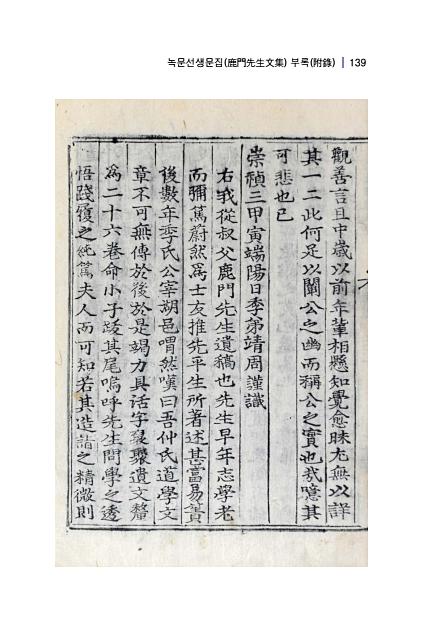 녹문선생문집(鹿門先生文集) 부록(附錄) | 139
觀善言且中歲以前年軰相懸知覺愈昧尤無以詳
其一二此何足以闡公之幽而稱公之實也哉噫其
可悲也已
崇禎三甲寅端陽日季弟靖周謹識
右我從叔父鹿門先生遺稿也先生早年志學老
而彌篤蔚然爲士友推先平生所著述甚富易簀
後數年季氏公宰湖邑喟然嘆曰吾仲氏道學文
章不可無傳於後於是竭力具活字裒聚遺文釐
爲二十六卷命小子跋其尾嗚呼先生問學之透
悟踐履之純篤夫人而可知若其造詣之精微則